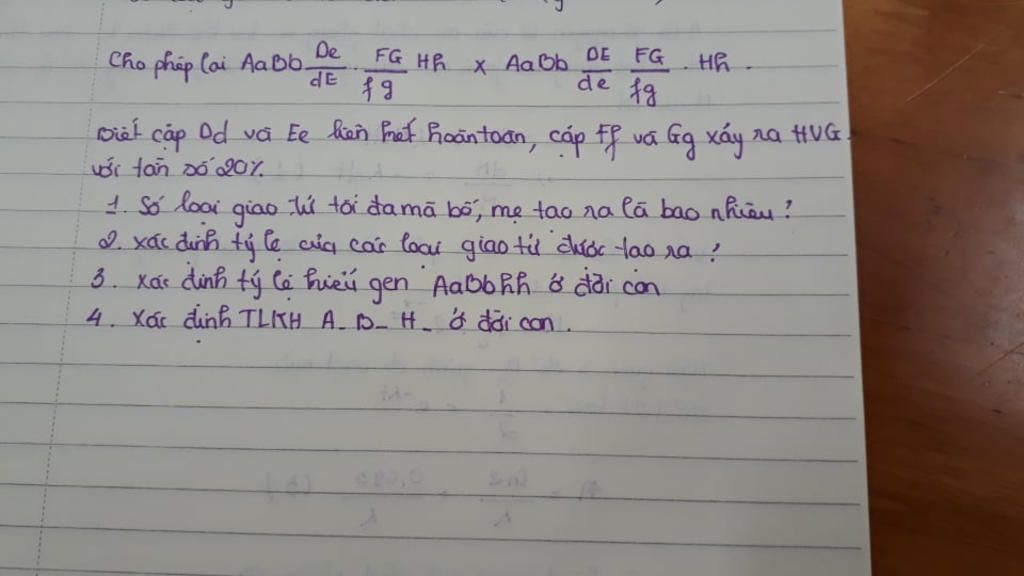 Cho phép lai AaBb De/dE . FG/fg Hh x AaBb DE/de FG/fg . Hh .
Biết cặp Dd và Ee liên kết hoàn toàn, cặp Ff và Gg xảy ra HVG
với tần số 20%.
1. Số loại giao tử tối đa mà bố, mẹ tạo ra là bao nhiêu?
2. Xác định tỷ lệ của các loại giao tử được tạo ra?
3. Xác định tỷ lệ kiểu gen AaBbhh ở đời con
4. Xác định TLKH A_ B_ H_ ở đời con.